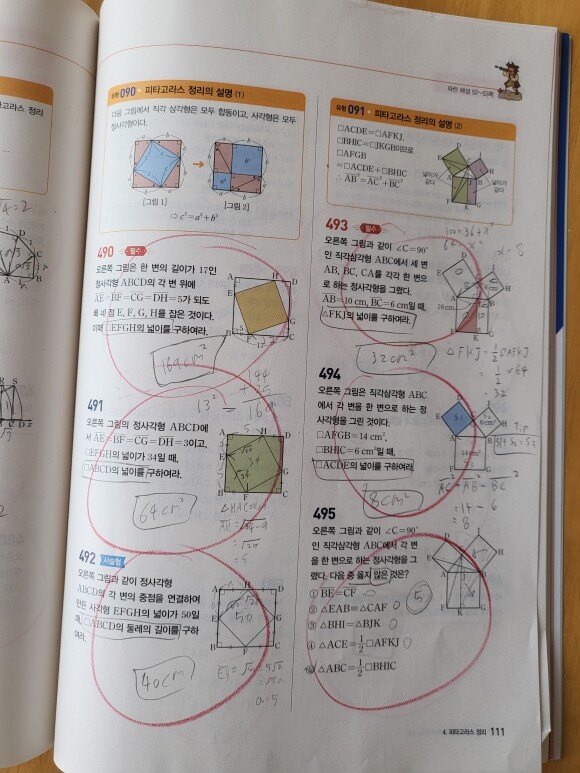 파란 해설 52~53쪽
유형 090 피타고라스 정리의 설명 (1)
다음 그림에서 직각 삼각형은 모두 합동이고, 사각형은 모두
정사각형이다.
[그림 1]
[그림 2]
⇨ c²=a²+b²
490 필수
오른쪽 그림은 한 변의 길이가 17인
정사각형 ABCD의 각 변 위에
AE=BF=CG=DH=5가 되도
록 네 점 E, F, G, H를 잡은 것이다.
이때 □EFGH의 넓이를 구하여라.
144
+ 25
13²
491
오른쪽 그림의 정사각형 ABCD에
서 AE=BF=CG=DH=3이고,
□EFGH의 넓이가 34일 때,
□ABCD의 넓이를 구하여라.
64cm²
492 서술형
오른쪽 그림과 같이 정사각형
ABCD의 각 변의 중점을 연결하여
만든 사각형 EFGH의 넓이가 50일
때, □ABCD의 둘레의 길이를 구하
여라.
40cm
유형 091 피타고라스 정리의 설명 (2)
□ACDE=□AFKJ,
□BHIC=□JKGB이므로
□AFGB
=□ACDE+□BHIC
∴ AB²=AC²+BC²
넓이가
같다
넓이가
같다
493 필수
오른쪽 그림과 같이 ∠C=90°
인 직각삼각형 ABC에서 세 변
AB, BC, CA를 각각 한 변으
로 하는 정사각형을 그렸다.
AB=10 cm, BC=6 cm일 때,
△FKJ의 넓이를 구하여라.
100=36+x²
x=8
32cm²
494
오른쪽 그림은 직각삼각형 ABC
에서 각 변을 한 변으로 하는 정
사각형을 그린 것이다.
□AFGB=14 cm²,
□BHIC=6 cm²일 때,
□ACDE의 넓이를 구하여라.
8cm²
495
오른쪽 그림과 같이 ∠C=90°
인 직각삼각형 ABC에서 각 변
을 한 변으로 하는 정사각형을 그
렸다. 다음 중 옳지 않은 것은?
① BE=CF
② △EAB=△CAF
③ △BHI=△BJK
④ △ACE=½□AFKJ
⑤ △ABC=½□BHIC
4. 피타고라스 정리 111